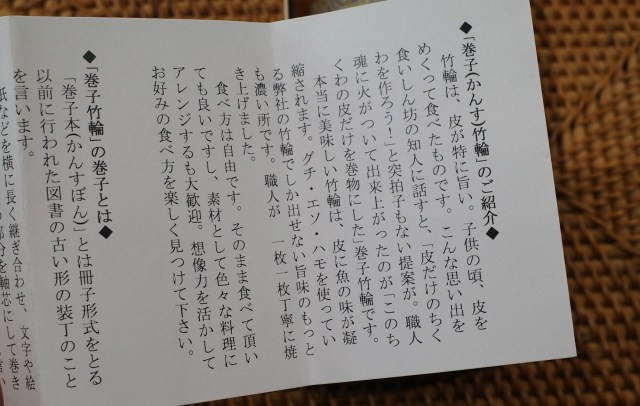 ◆「巻子(かんす)竹輪」のご紹介◆
竹輪は、皮が特に旨い。子供の頃、皮を
めくって食べたものです。こんな思い出を
食いしん坊の知人に話すと、「皮だけのちく
わを作ろう!」と突拍子もない提案が。職人
魂に火がついて出来上がったのが「このち
くわの皮だけを巻物にした」巻子竹輪です。
本当に美味しい竹輪は、皮に魚の味が凝
縮されます。グチ・エソ・ハモを使ってい
る弊社の竹輪でしか出せない旨味のもっと
も濃い所です。職人が 一枚一枚丁寧に焼
き上げました。
食べ方は自由です。そのまま食べて頂い
ても良いですし、素材として色々な料理に
アレンジするも大歓迎。想像力を活かして
お好みの食べ方を楽しく見つけて下さい。
◆「巻子竹輪」の巻子とは◆
「巻子本(かんすぼん)」とは冊子形式をとる
以前に行われた図書の古い形の装丁のこと
を言います。
紙などを横に長く継ぎ合わせ、文字や絵
部分を軸芯にして巻き